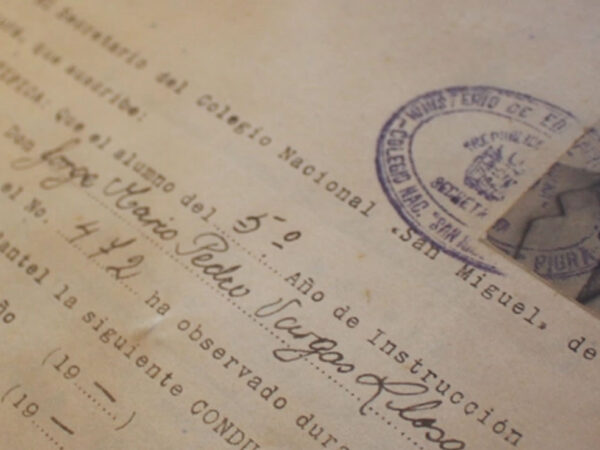 el Secretario del Colegio Nacional «San Miguel» de
que suscribe:
Que el alumno del 5º Año de Instrucción
Don Jorge Mario Pedro Vargas Llosa
el No. 472 ha observado dura
la siguiente CONDU
(19 — )
(19 —
MINISTERIO DE ED
COLEGIO NAC. SAN
SECRETA
PIURA